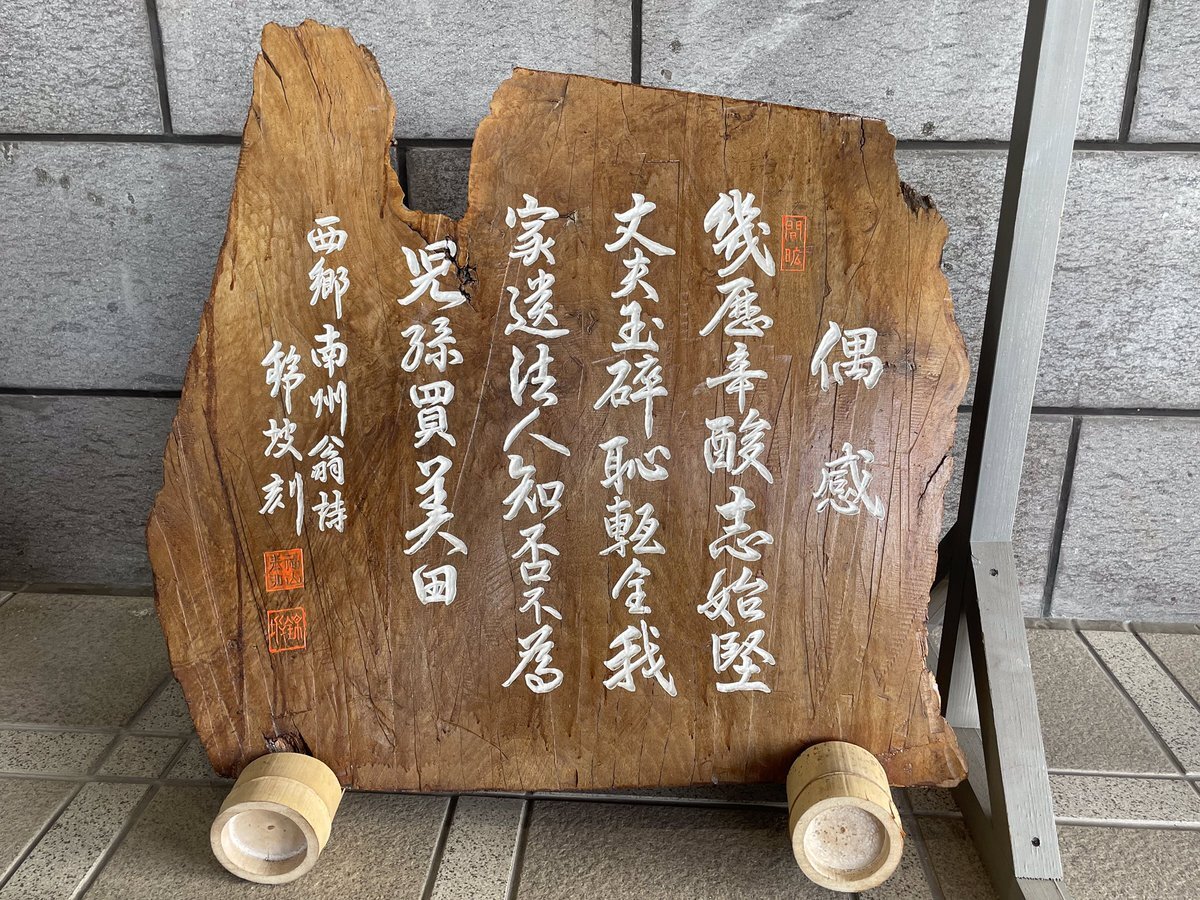 偶感
幾歴辛酸志始堅
丈夫玉碎恥甎全我
家遺法人知否不為
児孫買美田
西郷南州翁詩
錦坡刻